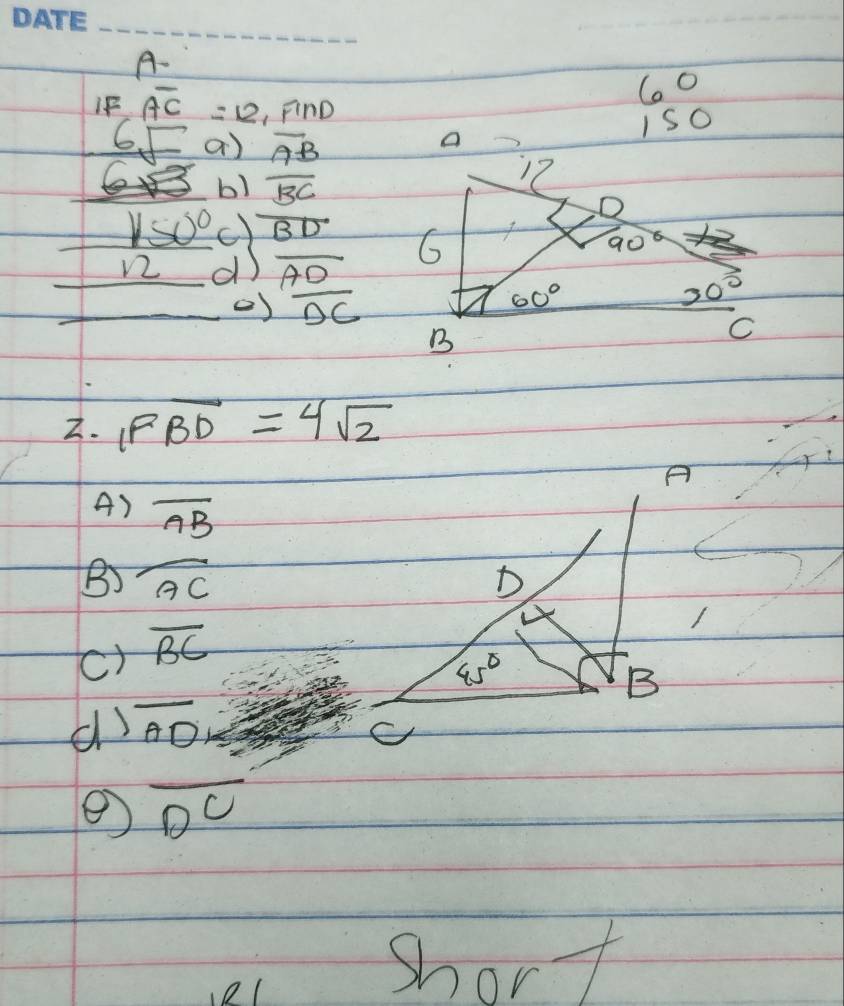 DATE
A-
IF AC = 12, FIND
6√ a) AB
6√3 b) BC
150° c) BD
12 d) AD
e) DC
60
150
A
12
D
6
90°
60°
30°
B
C
2. IF BD = 4√2
A) AB
B) AC
C) BC
d) AD
e) DC
A
D
45°
B
C
Short